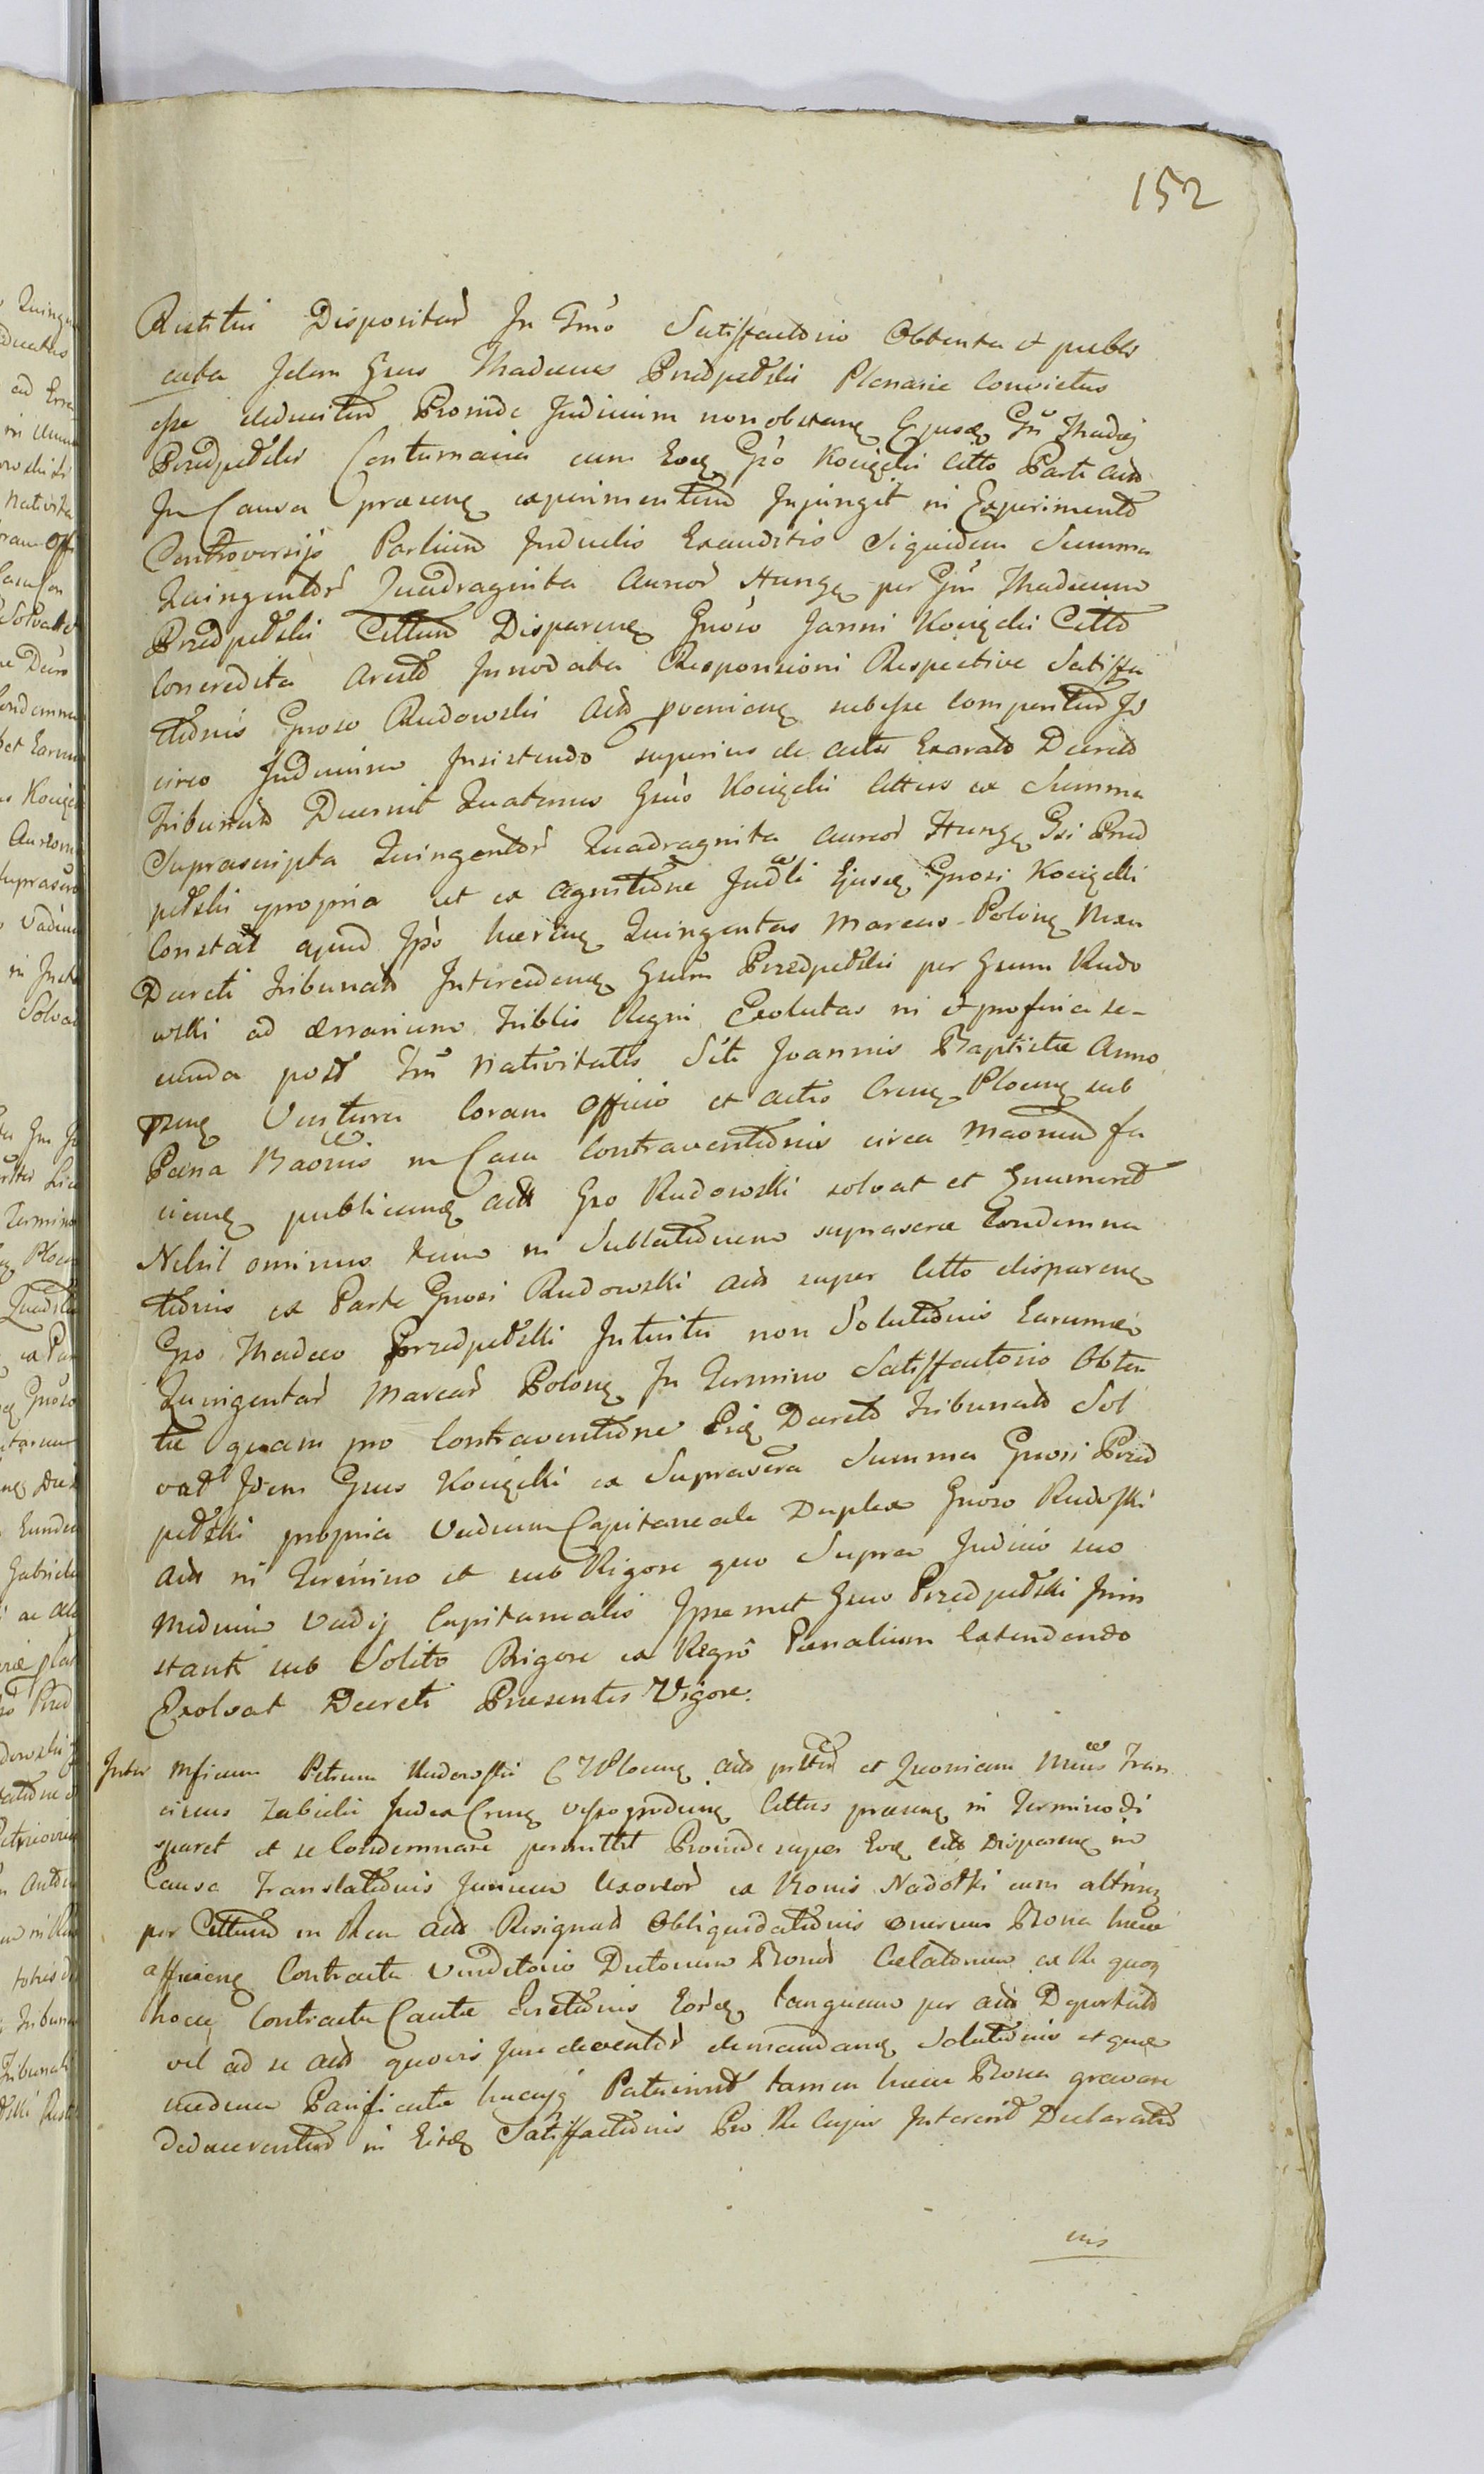 152
Restitui Dispositar In Tmo Satisfactorio Obtenta et publi
cata Idem Gsus Thadaeus Przedpełski Plenarie Convictus
esse deducitur Proinde Judicium non obstane Ejusdq Gsi Thadaei
Przedpełski Contumacia cum Eoq Gso Kocięcki Citto Parte Actt
In Causa praesenq experimentum Injungit in Experimento
Controversijs Partium Inductis Exauditis Siquidem Summa
Quingentor Quadraginta Aureor Hungq per Gsm Thadaeum
Przedpełski Cittum Disparenq Gnoso Joanni Kocięcki Citto
Concredita Aresto Innodata Responsioni Respective Satisfa
ctionis Gnoso Rudowski Actt provenienq subesse comperitur Id
circo Judicium Insistendo superius de actu Exarato Decreto
Tribunali Decernit Quatenus Gsus Kocięcki Cittus ex Summa
Suprascripta Quingentor Quadraginta Aureor Hungq Gsi Przed
pełski propria ut ex Agnitione Judli Ejusdq Gnosi Kocięcki
Constat apud Ipso haerenq Quingentas Marcas Polonq Nexu
Decreti Tribunali Intercedenq Gsum Przedpełski per Gsum Rudo
wski ad Aerarium Triblis Regni Exolutas in et pro feria se-
cunda post Tm Nativitatis Scti Joannis Baptistae Anno
praesenq Ventura Coram Officio et Actis Crenq Plocenq sub
Paena Baonis in Casu Contraventionis circa Maonem fa
cienq publicanq Actt Gso Rudowski solvat et Enumeret
Nihil ominus tamen in Sublationem suprascrae Condemna
tionis ex Parte Gnosi Rudowski Actt super Citto disparenq
Gso Thadaeo Przedpełski Intuitu non Solutionis Earumdem
Quingentar Marcar Polonq In Termino Satisfactorio Obten
tae quam pro Contraventione Eidq Decreto Tribunali Sol
vat Idem Gsus Kocięcki ex Suprascra Summa Gnosi Przed
pełski propria Vadium Capitaneale Duplex Gnoso Rudoski
Actt in Termino et sub Rigore quo Supra Judicio suo
medium Vadij Capitanealis Ipsemet Gsus Przedpełski Inin
stanti sub Solito Rigore ex Regro Paenalium Extendendo
Exolvat Decreti Praesentis Vigore.
Inter Mficum Petrum Rudowski C Plocenq Actt et Quoniam Mcus Fran
ciscus Zabicki Judex Crenq Wyszogrodenq Cittus praesenq in Termino di
sparet et se Condemnare permittit Proinde super Eoq citto Disparenq in
Causa Translationis Jurium Uxoreor ex Bonis Nadołki cum attinenq
per Cittum in Rem Actt Resignatt Obliquidationis onerum Bona haec
afficienq Contractu Venditorio Dictorum Bonor Celatorum ex Re quoq
hocce Contractu Cautae Evictionis Eordq tanquam per Actt Deportatt
vel ad se Actt quovis Jure deventor demandanq Solutionis et quae
nedum Panificata hucusq Patuerunt tamen haec Bona gravare
deducerentur in Eisdq Satisfactionis Pro Re Cujus Intererit Declaratio
nis